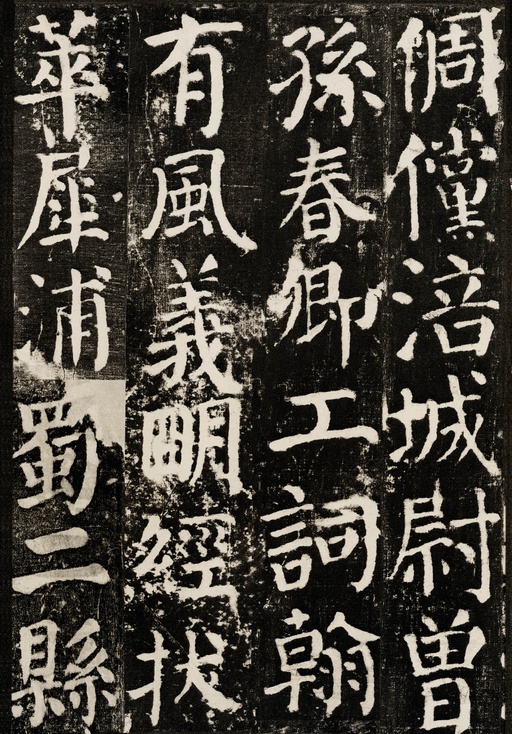 倜儻涪城尉曽
孫春卿工詞翰
有風義明經拔
萃犀浦蜀二縣